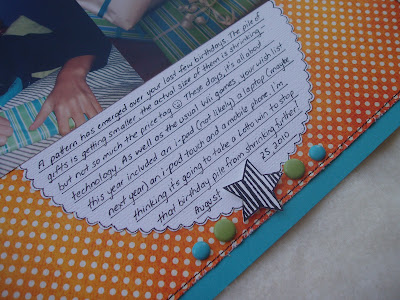 A pattern has emerged over your last few birthdays. The pile of
gifts is getting smaller. The actual size of them is shrinking -
but not so much the price tag ☺ These days, it's all about
technology. As well as the usual Wii games, your wish list
this year included an i-pad (not likely), a laptop (maybe
next year), an i-pod touch and a mobile phone. I'm
thinking it's going to take a Loto win to stop
that birthday pile from shrinking further!
August 25. 2010